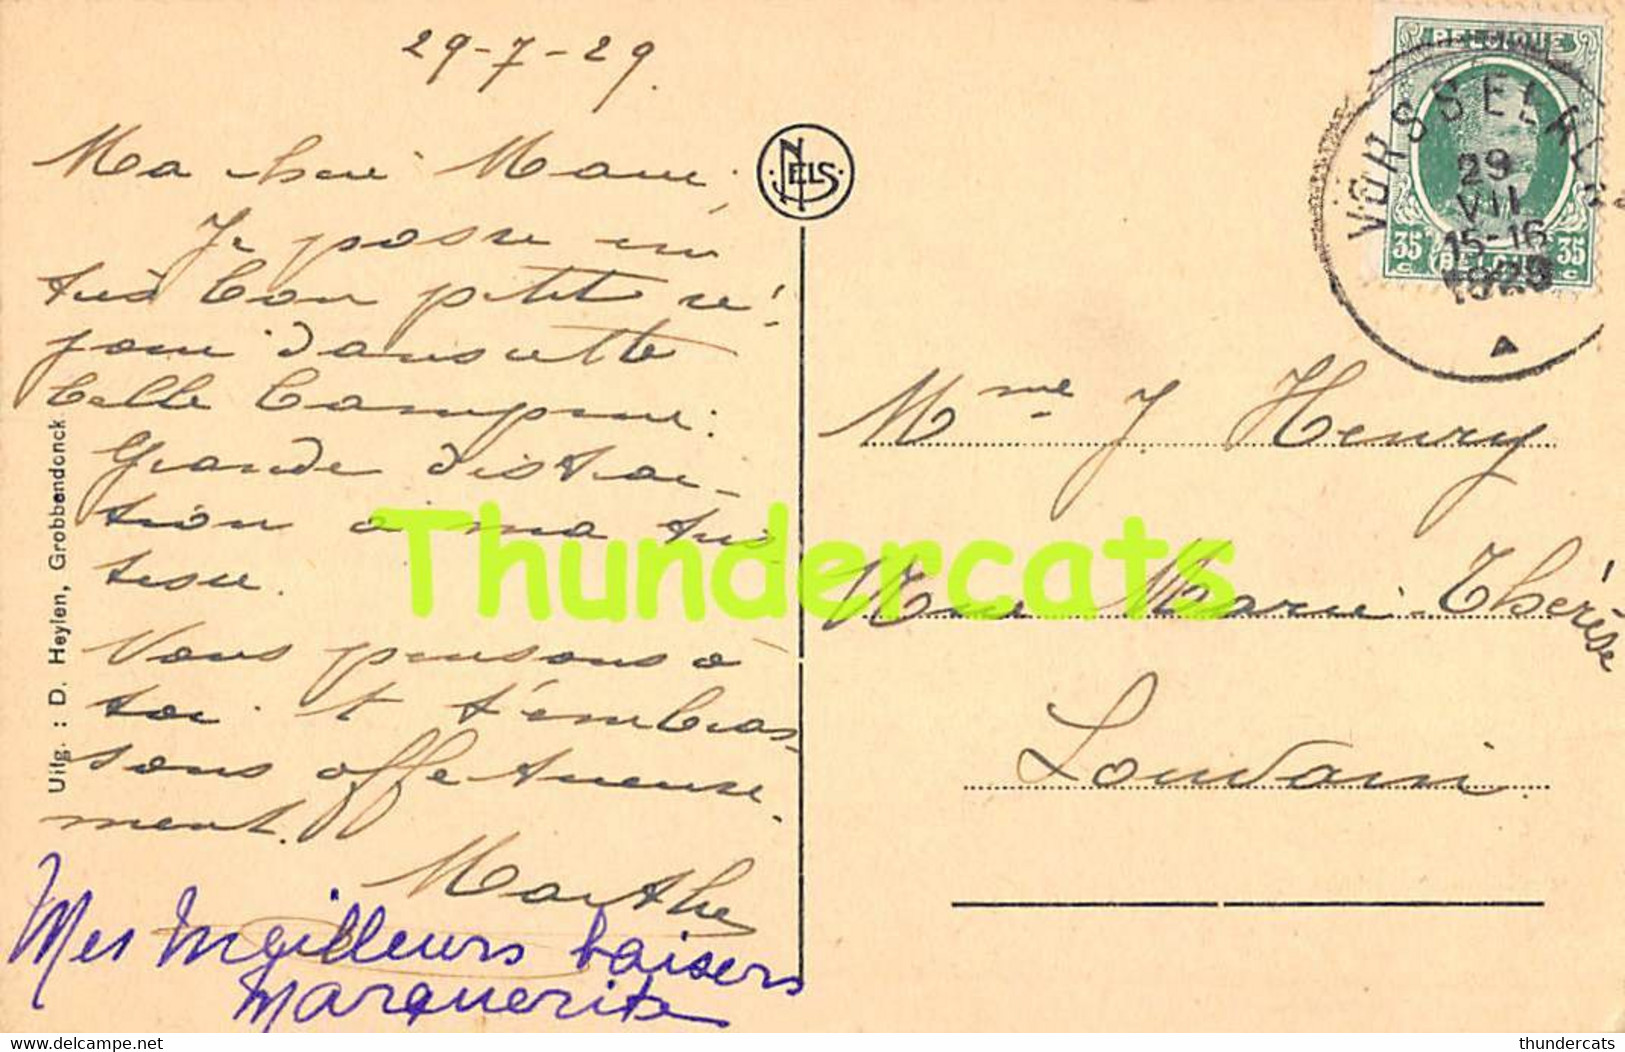 29-7-29.
Ma chère Mamie,
Je passe un
très bon petit sé-
jour dans cette
belle Campine.
Grande distrac-
tion à ma tris
tesse.
Nous pensons à
toi et t'embras-
sons affectueuse-
ment.
Marthe
Mes Meilleurs baisers
Marguerite
Uitg. : D. Heylen, Grobbendonck
NELS
BELGIQUE
35 c 35 c
BELGIË
VORSSELAER
29
VII
15-16
1929
Mme J Henry
Rue Marie-Thérèse
Louvain.
Thundercats
delcampe.net
thundercats